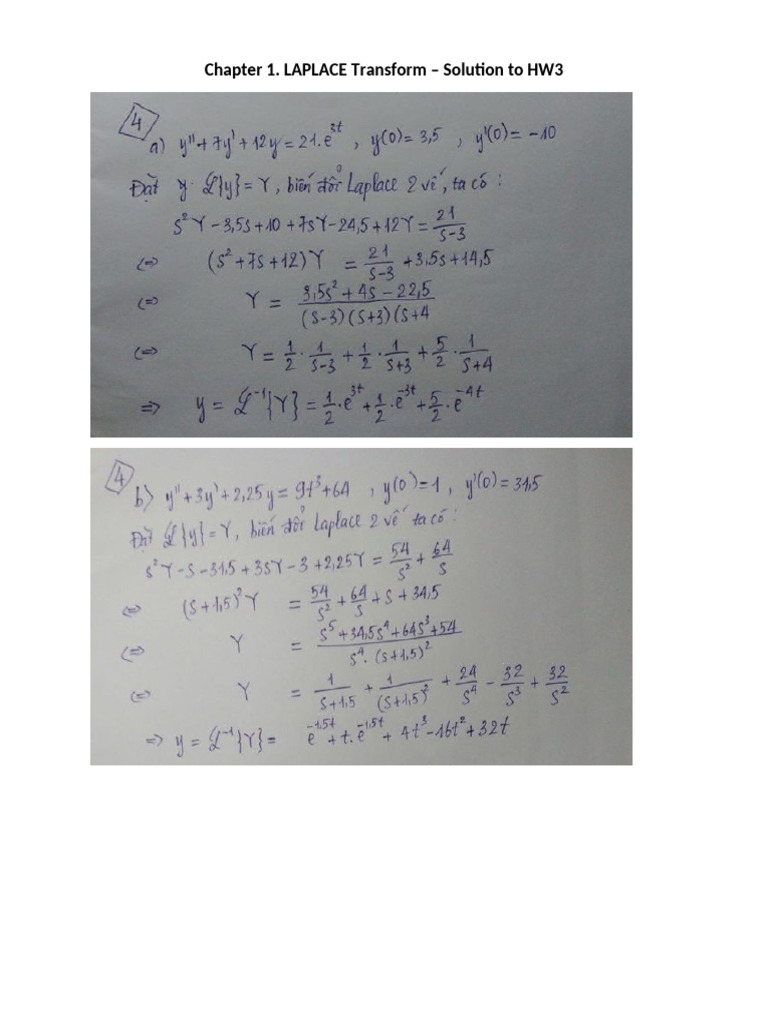 Chapter 1. LAPLACE Transform – Solution to HW3
4
a) y" + 7y' + 12y = 21.e^{3t} , y(0) = 3,5 , y'(0) = -10
Đặt y. ℒ{y} = Y, biến đổi Laplace 2 vế, ta có :
s²Y - 3,5s + 10 + 7sY - 24,5 + 12Y = 21/(s-3)
(=) (s² + 7s + 12)Y = 21/(s-3) + 3,5s + 14,5
(=) Y = (3,5s² + 4s - 22,5)/((s-3)(s+3)(s+4
(=) Y = 1/2 . 1/(s-3) + 1/2 . 1/(s+3) + 5/2 . 1/(s+4)
=> y = ℒ⁻¹{Y} = 1/2 . e^{3t} + 1/2 . e^{-3t} + 5/2 . e^{-4t}
4
b) y" + 3y' + 2,25y = 9t³ + 64 , y(0) = 1 , y'(0) = 31,5
Đặt ℒ{y} = Y, biến đổi Laplace 2 vế ta có :
s²Y - s - 31,5 + 3sY - 3 + 2,25Y = 54/s² + 64/s
(=) (s + 1,5)²Y = 54/s² + 64/s + s + 34,5
(=) Y = (s⁵ + 34,5s⁴ + 64s³ + 54)/(s⁴.(s+1,5)²)
(=) Y = 1/(s+1,5) + 1/(s+1,5)² + 24/s⁴ - 32/s³ + 32/s²
=> y = ℒ⁻¹{Y} = e^{-1,5t} + t.e^{-1,5t} + 4t³ - 16t² + 32t